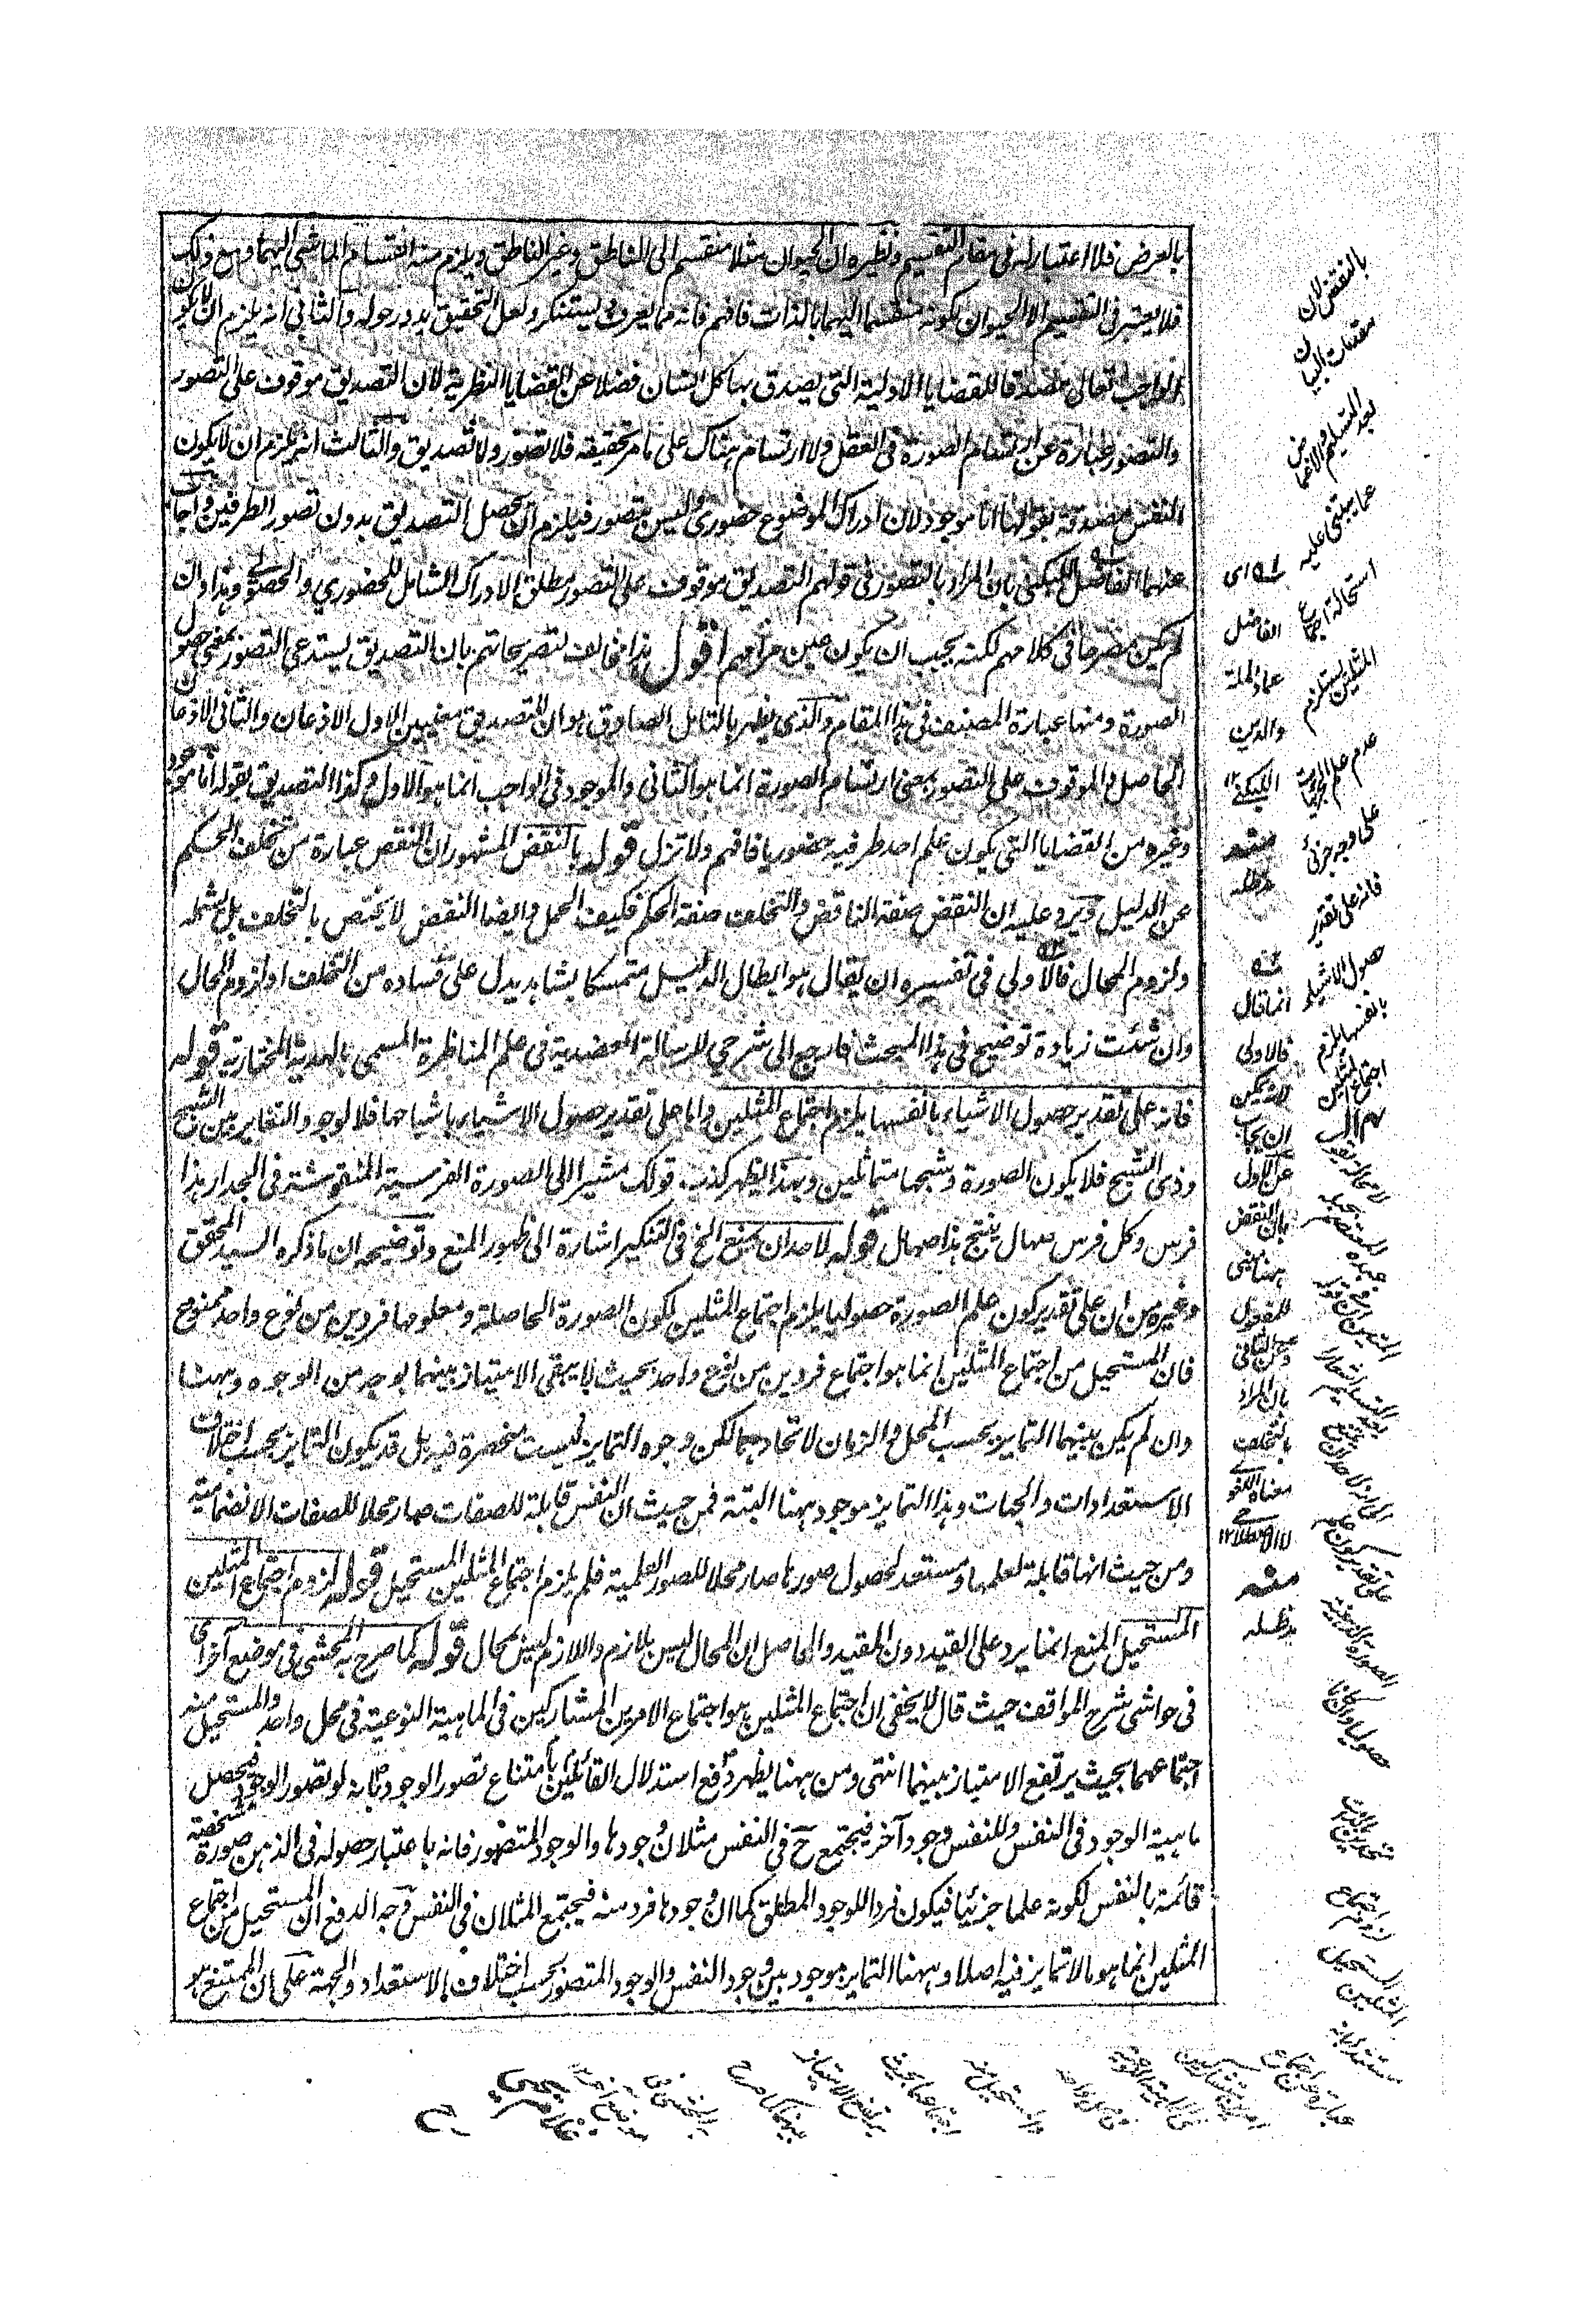 بالعرض فلا اعتبار له في مقام التقسيم ونظيره ان الحيوان مثلا منقسم الى الناطق وغير الناطق ويلزم منه انقسام الماشي اليهما ومع ذلك
فلا يعتبر في التقسيم الا الحيوان لكونه منقسما اليهما بالذات فافهم فانه مما يعرف ويستنكر ولعل التحقيق يدور حوله والثاني انه يلزم ان لا يكون
الواجب تعالى مصدقا للقضايا الاولية التي يصدق بها كل انسان فضلا عن القضايا النظرية لان التصديق موقوف على التصور
والتصور عبارة عن ارتسام الصورة في العقل ولا ارتسام هناك على ما مر تحقيقه فلا تصور ولا تصديق والثالث انه يلزم ان لا يكون
النفس مصدقة بقولها انا موجود لان ادراك الموضوع حضوري وليس بتصور فيلزم ان يحصل التصديق بدون تصور الطرفين واجاب
عنهما الفاضل اللبكني بان المراد بالتصور في قولهم التصديق موقوف على التصور مطلق الادراك الشامل للحضوري والحصولي وهذا وان
لم يكن مصرحا في كلامهم لكنه يجب ان يكون عين مرامهم اقول هذا مخالف لتصريحاتهم بان التصديق يستدعي التصور بمعنى حصول
الصورة ومنها عبارة المصنف في هذا المقام والذي يظهر بالتامل الصادق هو ان للتصديق معنيين الاول الاذعان والثاني الاذعان
الحاصل والموقوف على التصور بمعنى ارتسام الصورة انما هو الثاني والموجود في الواجب انما هو الاول وكذا التصديق بقوله انا موجود
وغيره من القضايا التي يكون علم احد طرفيه حضوريا فافهم ولا تزل قوله بالنقض المشهور ان النقض عبارة من تخلف الحكم
عن الدليل ويرد عليه ان النقض صفة الناقض والتخلف صفة الحكم فكيف الحمل وايضا النقض لا يختص بالتخلف بل يشمله
ولزوم المحال فالاولى في تفسيره ان يقال هو ابطال الدليل متمسكا بشاهد يدل على فساده من التخلف او لزوم المحال
وان شئت زيادة توضيح في هذا المبحث فارجع الى شرحي للرسالة العضدية في علم المناظرة المسمى بالهدية المختارية قوله
فانه على تقدير حصول الاشياء بانفسها يلزم اجتماع المثلين واما على تقدير حصول الاشياء باشباحها فلا لوجود التغاير بين الشبح
وذي الشبح فلا يكون الصورة وشبحها متماثلين وبهذا يظهر كذب قولك مشيرا الى الصورة الفرسية المنقوشة في الجدار هذا
فرس وكل فرس صهال ينتج هذا صهال قوله لاحد ان يمنع الخ في التنكير اشارة الى ظهور المنع وتوضيحه ان ما ذكره السيد المحقق
وغيره من ان على تقدير كون علم الصورة حصوليا يلزم اجتماع المثلين لكون الصورة الحاصلة ومعلومها فردين من نوع واحد ممنوع
فان المستحيل من اجتماع المثلين انما هو اجتماع فردين من نوع واحد بحيث لا يبقى الامتياز بينهما بوجه من الوجوه وههنا
وان لم يكن بينهما التمايز بحسب المحل والزمان لاتحادهما لكن وجوه التمايز ليست منحصرة فيه بل قد يكون التمايز بحسب اختلاف
الاستعدادات والجهات وهذا التمايز موجود ههنا البتة فمن حيث ان النفس قابلة للصفات صار محلا للصفات الانضمامية
ومن حيث انها قابلة لعلمها ومستعد لحصول صورها صار محلا للصور العلمية فلم يلزم اجتماع المثلين المستحيل قوله لزوم اجتماع المثلين
المستحيل المنع انما يرد على القيد دون المقيد والحاصل ان المحال ليس بلازم واللازم ليس بمحال قوله كما صرح به المحشي في موضع آخر اي
في حواشي شرح المواقف حيث قال لا يخفى ان اجتماع المثلين هو اجتماع الامرين المشاركين في الماهية النوعية في محل واحد والمستحيل منه
اجتماعهما بحيث يرتفع الامتياز بينهما انتهى ومن ههنا يظهر دفع استدلال القائلين بامتناع تصور الوجود بانه لو تصور الوجود فيحصل
ماهية الوجود في النفس وللنفس وجود آخر فيجتمع ح في النفس مثلان وجودها والوجود المتصور فانه باعتبار حصوله في الذهن صورة شخصية
قائمة بالنفس لكونه علما جزئيا فيكون فردا للوجود المطلق كما ان وجودها فرد منه فيجتمع المثلان في النفس وجه الدفع ان المستحيل من اجتماع
المثلين انما هو ما لا تمايز فيه اصلا وههنا التمايز موجود بين وجود النفس والوجود المتصور بحسب اختلاف بالاستعداد والجهة على ان الممتنع هو
بالنقض لان
مقدمات البيان
بعد التسليم والاغماض
عما يبتنى عليه
استحالة اجتماع
المثلين يستلزم
عدم علم الجزئيات
على وجه جزئي
فانه على تقدير
حصول الاشياء
بانفسها يلزم
اجتماع المثلين
اي
الفاضل
عماد الملة
والدين
اللبكني ١٢
منه
مدظله
انما قال
فالاولى
لانه يمكن
ان يجاب
عن الاول
بان النقض
ههنا مبني
للمفعول
وعن الثاني
بان المراد
بالتخلف
معناه اللغوي
منه
مدظله